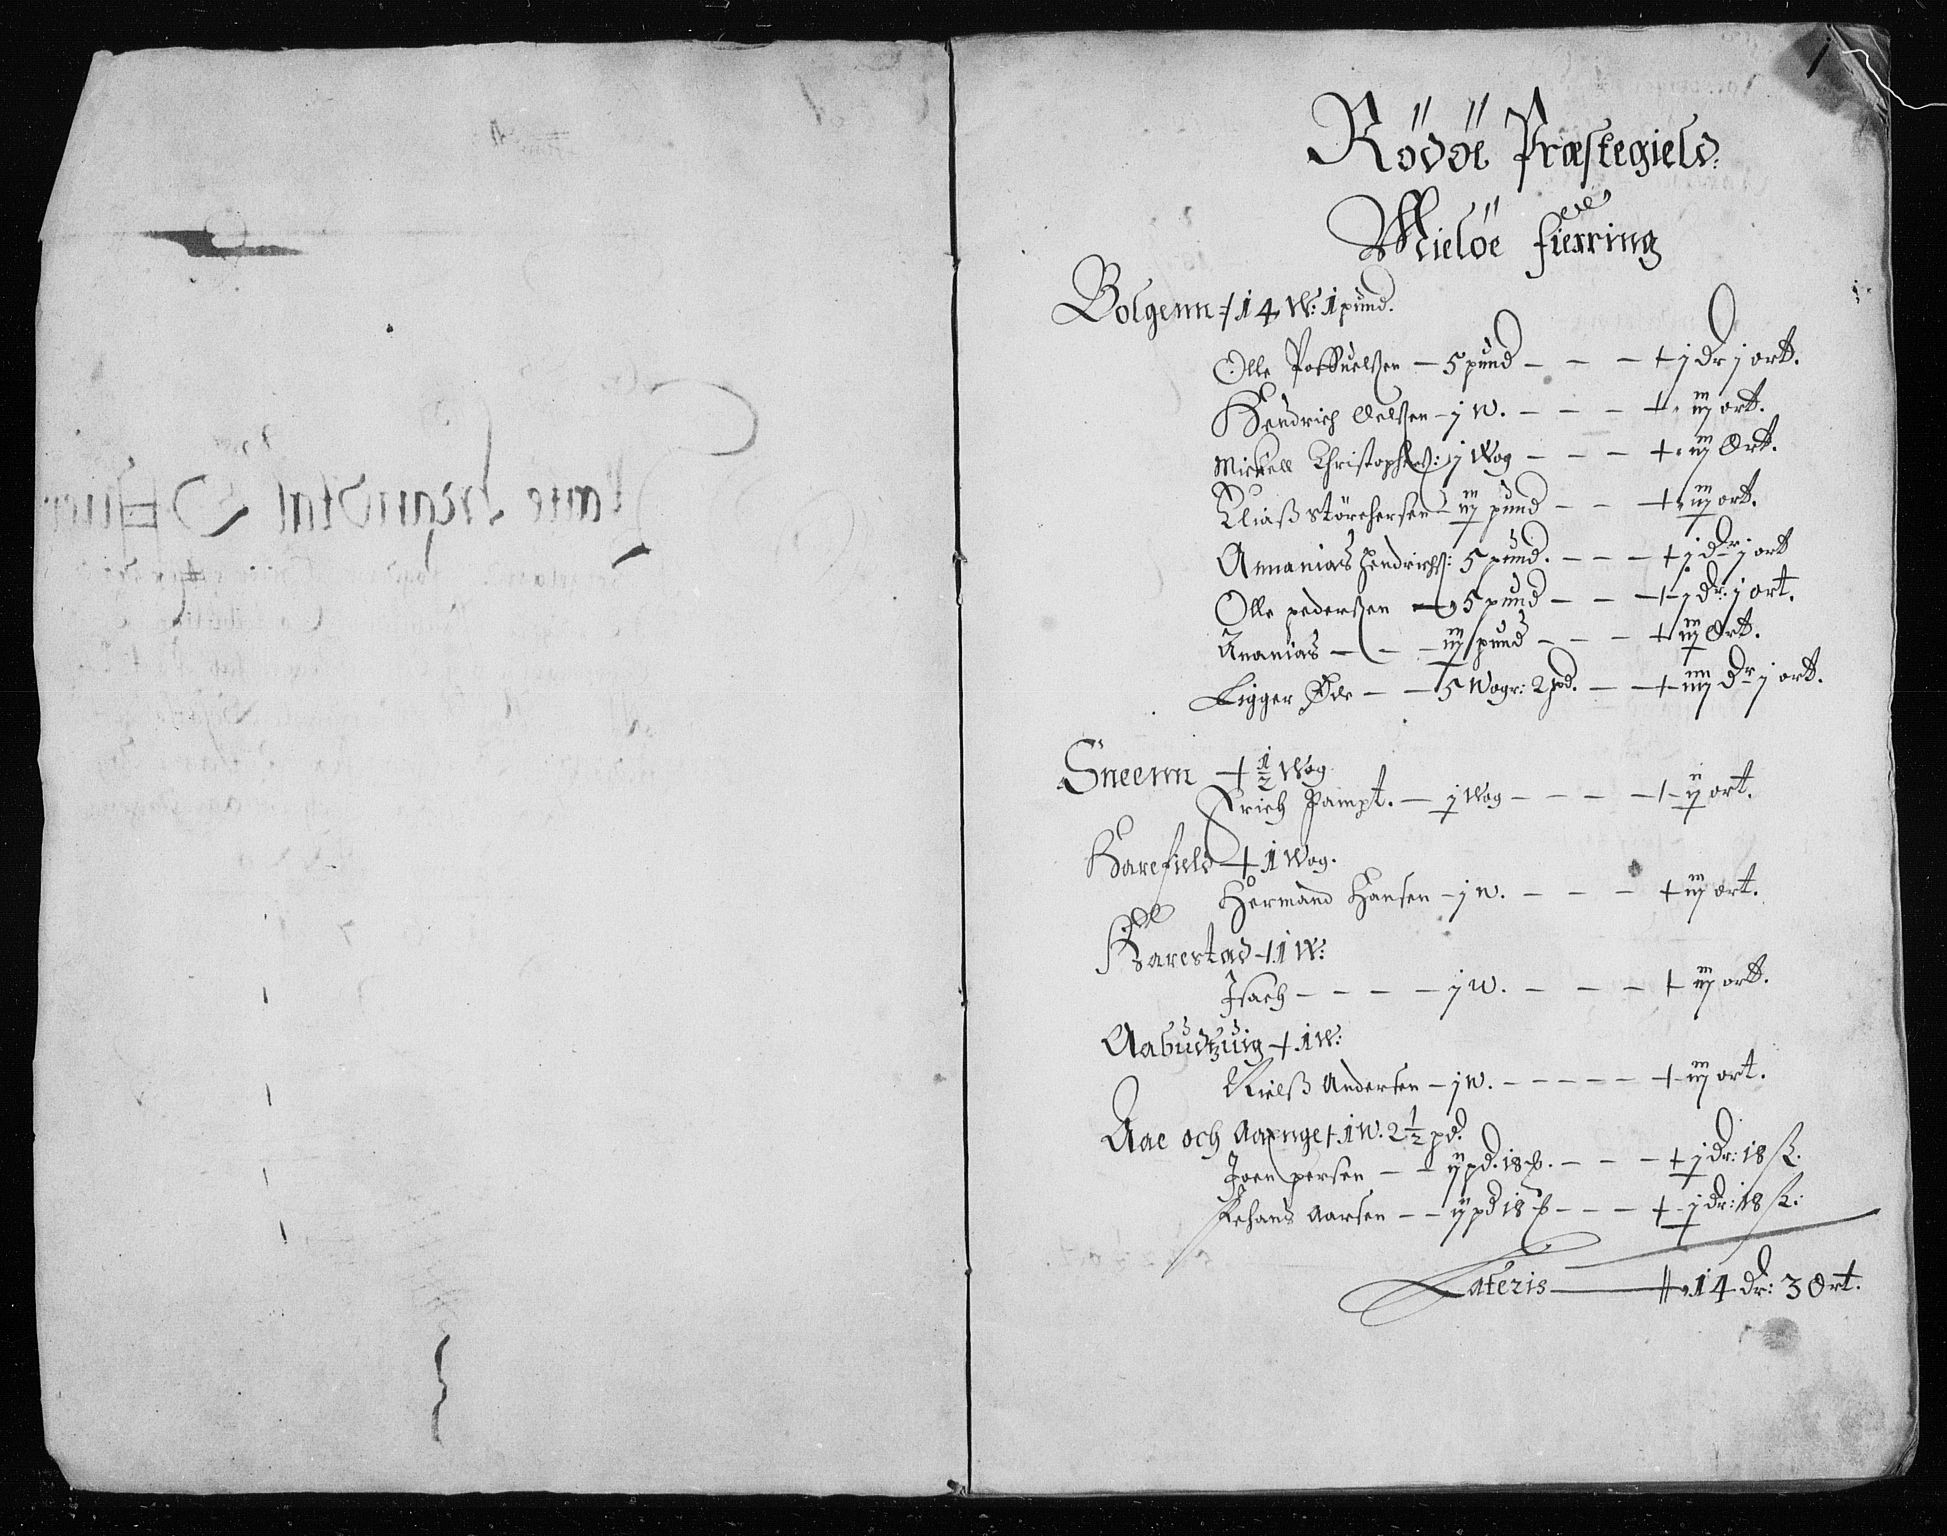 1
Rödöe Præstegield:
Mielöe fierring
Bolgenn + 14 W: 1 pund.
Olle Poffuelßen — 5 pund — — — + j dr j ort.
Hendrich Oelßen — j w. — — — + iij ort.
Mickell Christophers: j Wog — — — + iij Ort.
Eliaß Störchersen — iij pund — — + iij ort.
Annanias Hendrichß: 5 pund. — — — + j dr j ort
Olle pederßen — 5 pund — — + j dr: j ort.
Ananias — — — iij pund — — — + iij Ort.
Ligger Øde — — 5 Wogr: 2 pd. — — + iiij dr j ort.
Sneenn + ½ Wog
Erich Jampt. — j Wog — — — — + ij ort.
Harefield + 1 Wog.
Hermand Hansen — j w. — — — + iij ort.
Karestad + 1 W:
Isach — — — — j w. — — — + iij ort.
Aabudzuig + 1 W:
Nielß Andersen — j w. — — — — — + iij ort.
Aae och Aaenge + 1 W. 2½ pd.
Joen persen — — ij pd. 18 — — — + j dr: 18 ß.
Aarsen — — ij pd 18 — — — + j dr: 18 ß:
Lateris — 14 dr: 3 Ort.